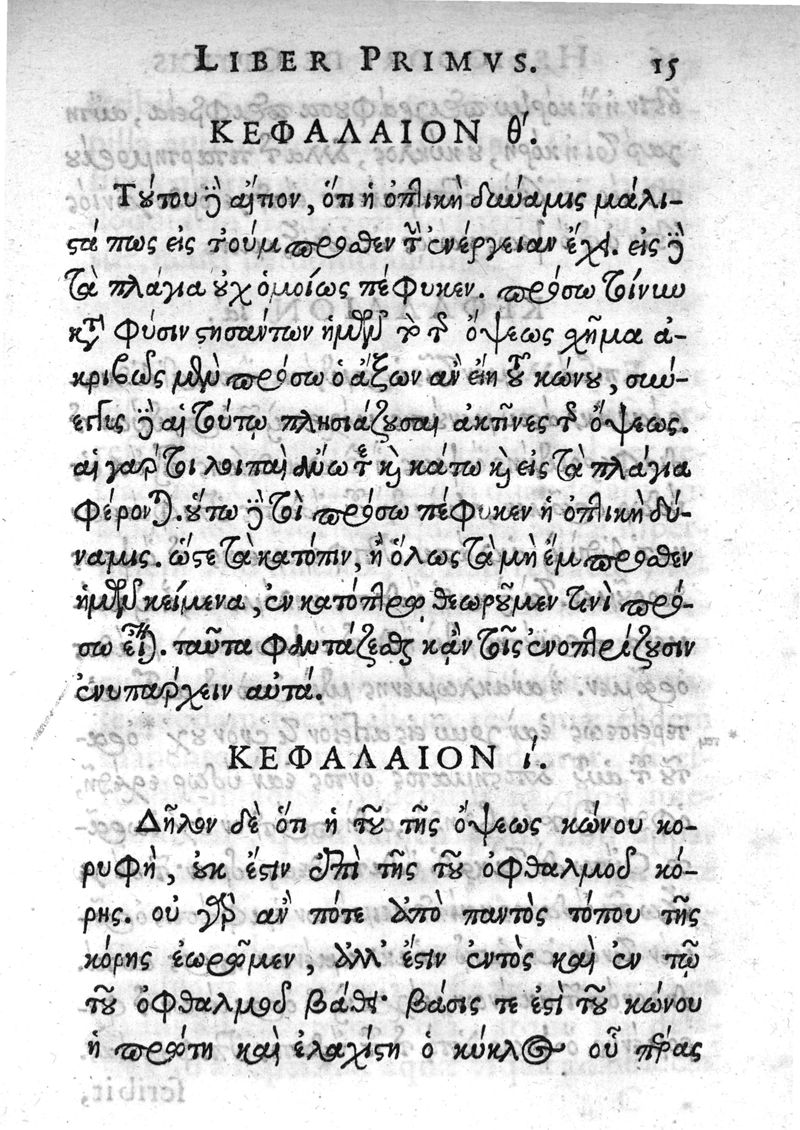 LIBER PRIMVS. 15
ΚΕΦΑΛΑΙΟΝ θ'.
Τούτου δὲ αἴτιον, ὅτι ἡ ὀπτικὴ δύναμις μάλι-
στά πως εἰς τοὔμπροσθεν τὴν ἐνέργειαν ἔχει. εἰς δὲ
τὰ πλάγια οὐχ ὁμοίως πέφυκεν. πρόσω τείνειν
κατὰ φύσιν στησάντων ἡμῶν τὸ τῆς ὄψεως σχῆμα ἀ-
κριβῶς μὲν πρόσω ὁ ἄξων ἂν εἴη τοῦ κώνου, συν-
εγγὺς δὲ αἱ τούτῳ πλησιάζουσαι ἀκτῖνες τῆς ὄψεως.
αἱ γάρ τοι λοιπαὶ ἄνω τε καὶ κάτω καὶ εἰς τὰ πλάγια
φέρονται. οὕτω δέ τοι πρόσω πέφυκεν ἡ ὀπτικὴ δύ-
ναμις. ὥστε τὰ κατόπιν, ἢ ὅλως τὰ μὴ ἔμπροσθεν
ἡμῶν κείμενα, ἐν κατόπτρῳ θεωροῦμεν πρό-
σω ταῦτα φαντάζεσθαι κἀν τοῖς ἐνοπτρίζουσιν
ἐνυπάρχειν αὐτά.
ΚΕΦΑΛΑΙΟΝ ί.
Δῆλον δὲ ὅτι ἡ τοῦ τῆς ὄψεως κώνου κο-
ρυφὴ, οὐκ ἔστιν ἐπὶ τῆς τοῦ ὀφθαλμοῦ κό-
ρης. οὐ γὰρ ἂν πότε ἀπὸ παντὸς τόπου τῆς
κόρης ἑωρῶμεν, ἀλλ' ἔστιν ἐντὸς καὶ ἐν τῷ
τοῦ ὀφθαλμοῦ βάθει· βάσις τε ἐστὶ τοῦ κώνου
ἡ πρώτη καὶ ἐλαχίστη ὁ κύκλος οὗ πέρας